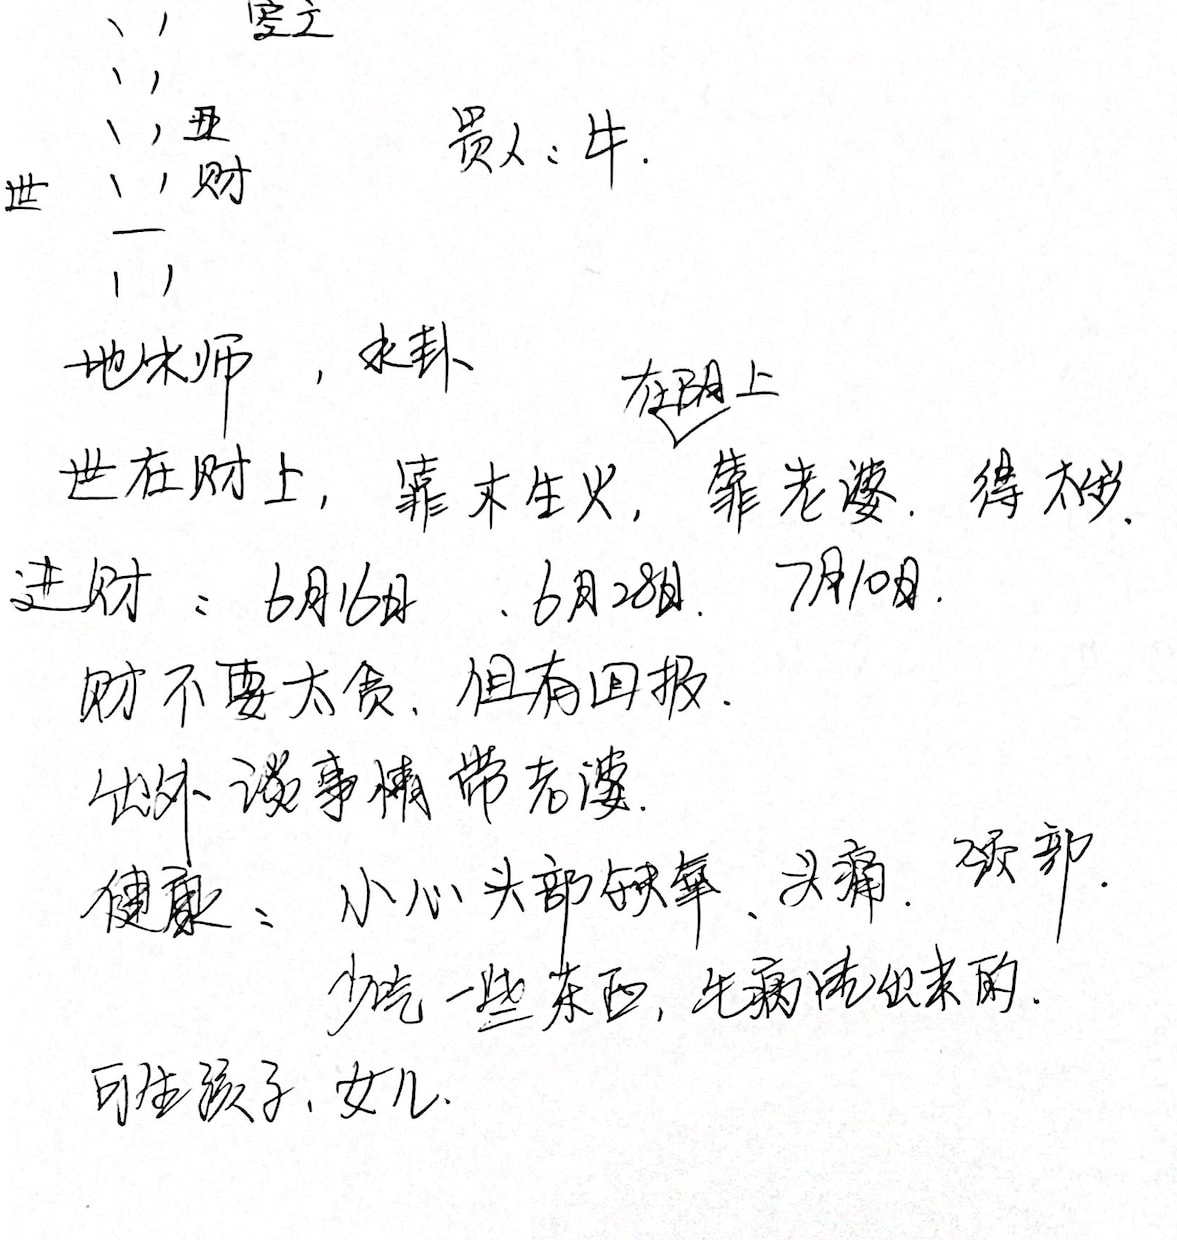 应
丑
贵人：牛.
世 财
地水师，水卦
在阴上
世在财上，靠木生火，靠老婆. 得大钱.
进财：6月16日、6月28日. 7月10日.
财不要太贪. 但有回报.
出外谈事情带老婆.
健康：小心头部缺氧、头痛. 颈部.
少吃一些东西，生病 出来的.
可生孩子、女儿.